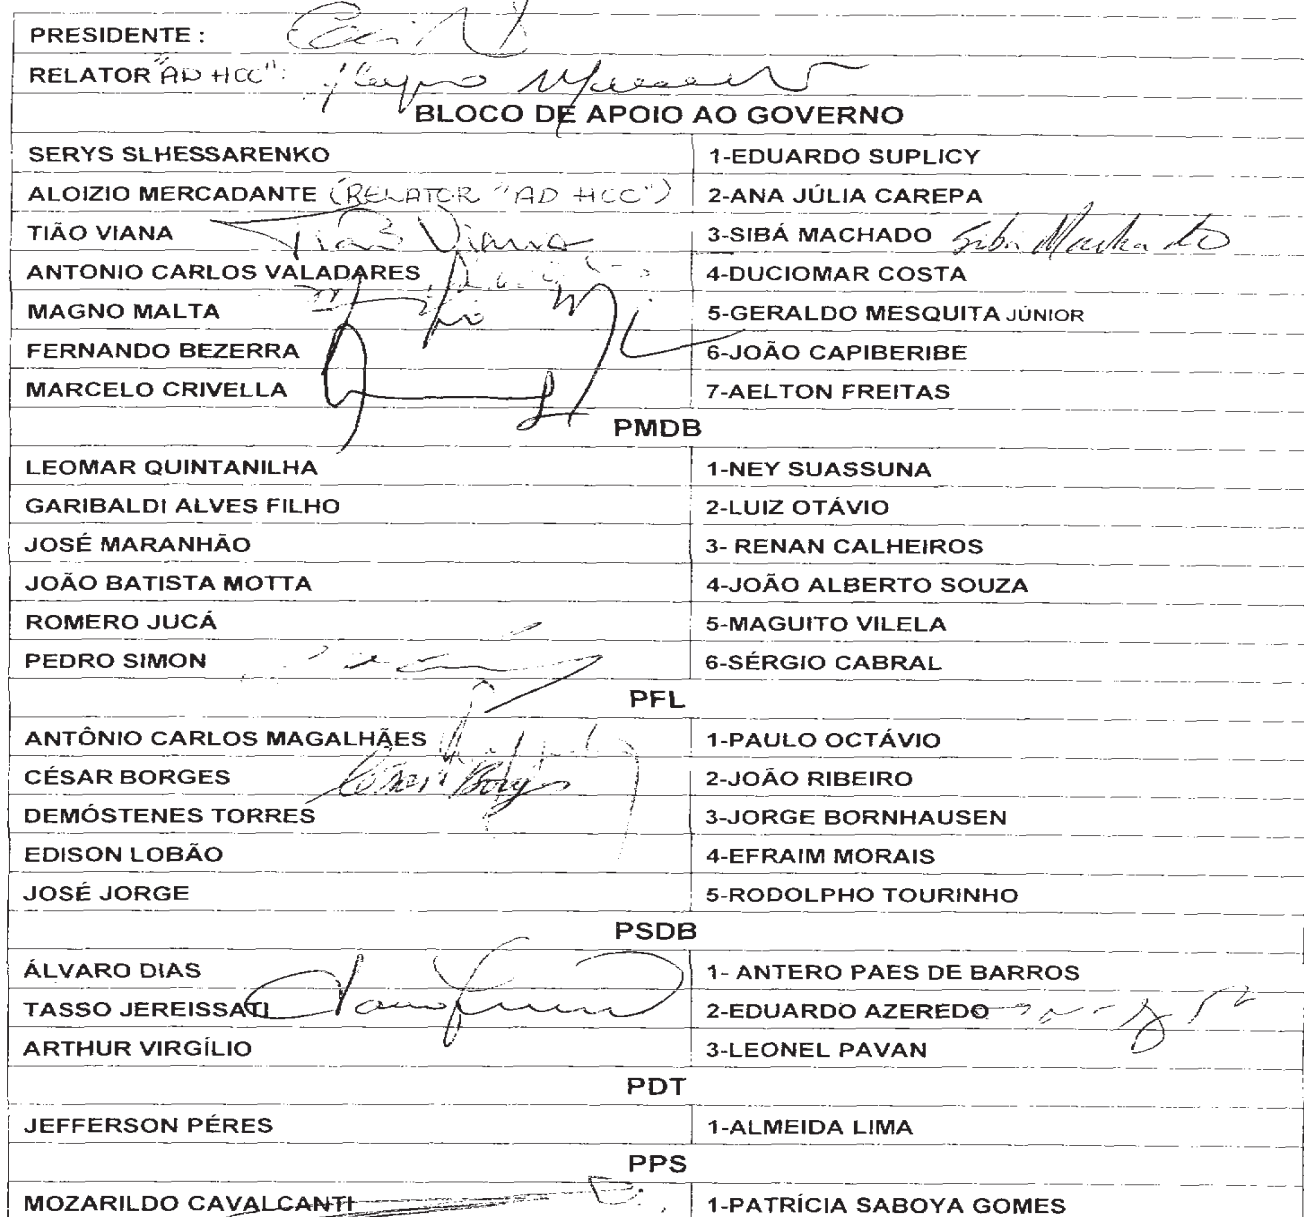 PRESIDENTE :
RELATOR "AD HOC":
BLOCO DE APOIO AO GOVERNO
SERYS SLHESSARENKO 1-EDUARDO SUPLICY
ALOIZIO MERCADANTE (RELATOR "AD HOC") 2-ANA JÚLIA CAREPA
TIÃO VIANA Tião Viana 3-SIBÁ MACHADO Sibá Machado
ANTONIO CARLOS VALADARES 4-DUCIOMAR COSTA
MAGNO MALTA 5-GERALDO MESQUITA JÚNIOR
FERNANDO BEZERRA 6-JOÃO CAPIBERIBE
MARCELO CRIVELLA 7-AELTON FREITAS
PMDB
LEOMAR QUINTANILHA 1-NEY SUASSUNA
GARIBALDI ALVES FILHO 2-LUIZ OTÁVIO
JOSÉ MARANHÃO 3- RENAN CALHEIROS
JOÃO BATISTA MOTTA 4-JOÃO ALBERTO SOUZA
ROMERO JUCÁ 5-MAGUITO VILELA
PEDRO SIMON 6-SÉRGIO CABRAL
PFL
ANTÔNIO CARLOS MAGALHÃES 1-PAULO OCTÁVIO
CÉSAR BORGES César Borges 2-JOÃO RIBEIRO
DEMÓSTENES TORRES 3-JORGE BORNHAUSEN
EDISON LOBÃO 4-EFRAIM MORAIS
JOSÉ JORGE 5-RODOLPHO TOURINHO
PSDB
ÁLVARO DIAS 1- ANTERO PAES DE BARROS
TASSO JEREISSATI 2-EDUARDO AZEREDO
ARTHUR VIRGÍLIO 3-LEONEL PAVAN
PDT
JEFFERSON PÉRES 1-ALMEIDA LIMA
PPS
MOZARILDO CAVALCANTI 1-PATRÍCIA SABOYA GOMES